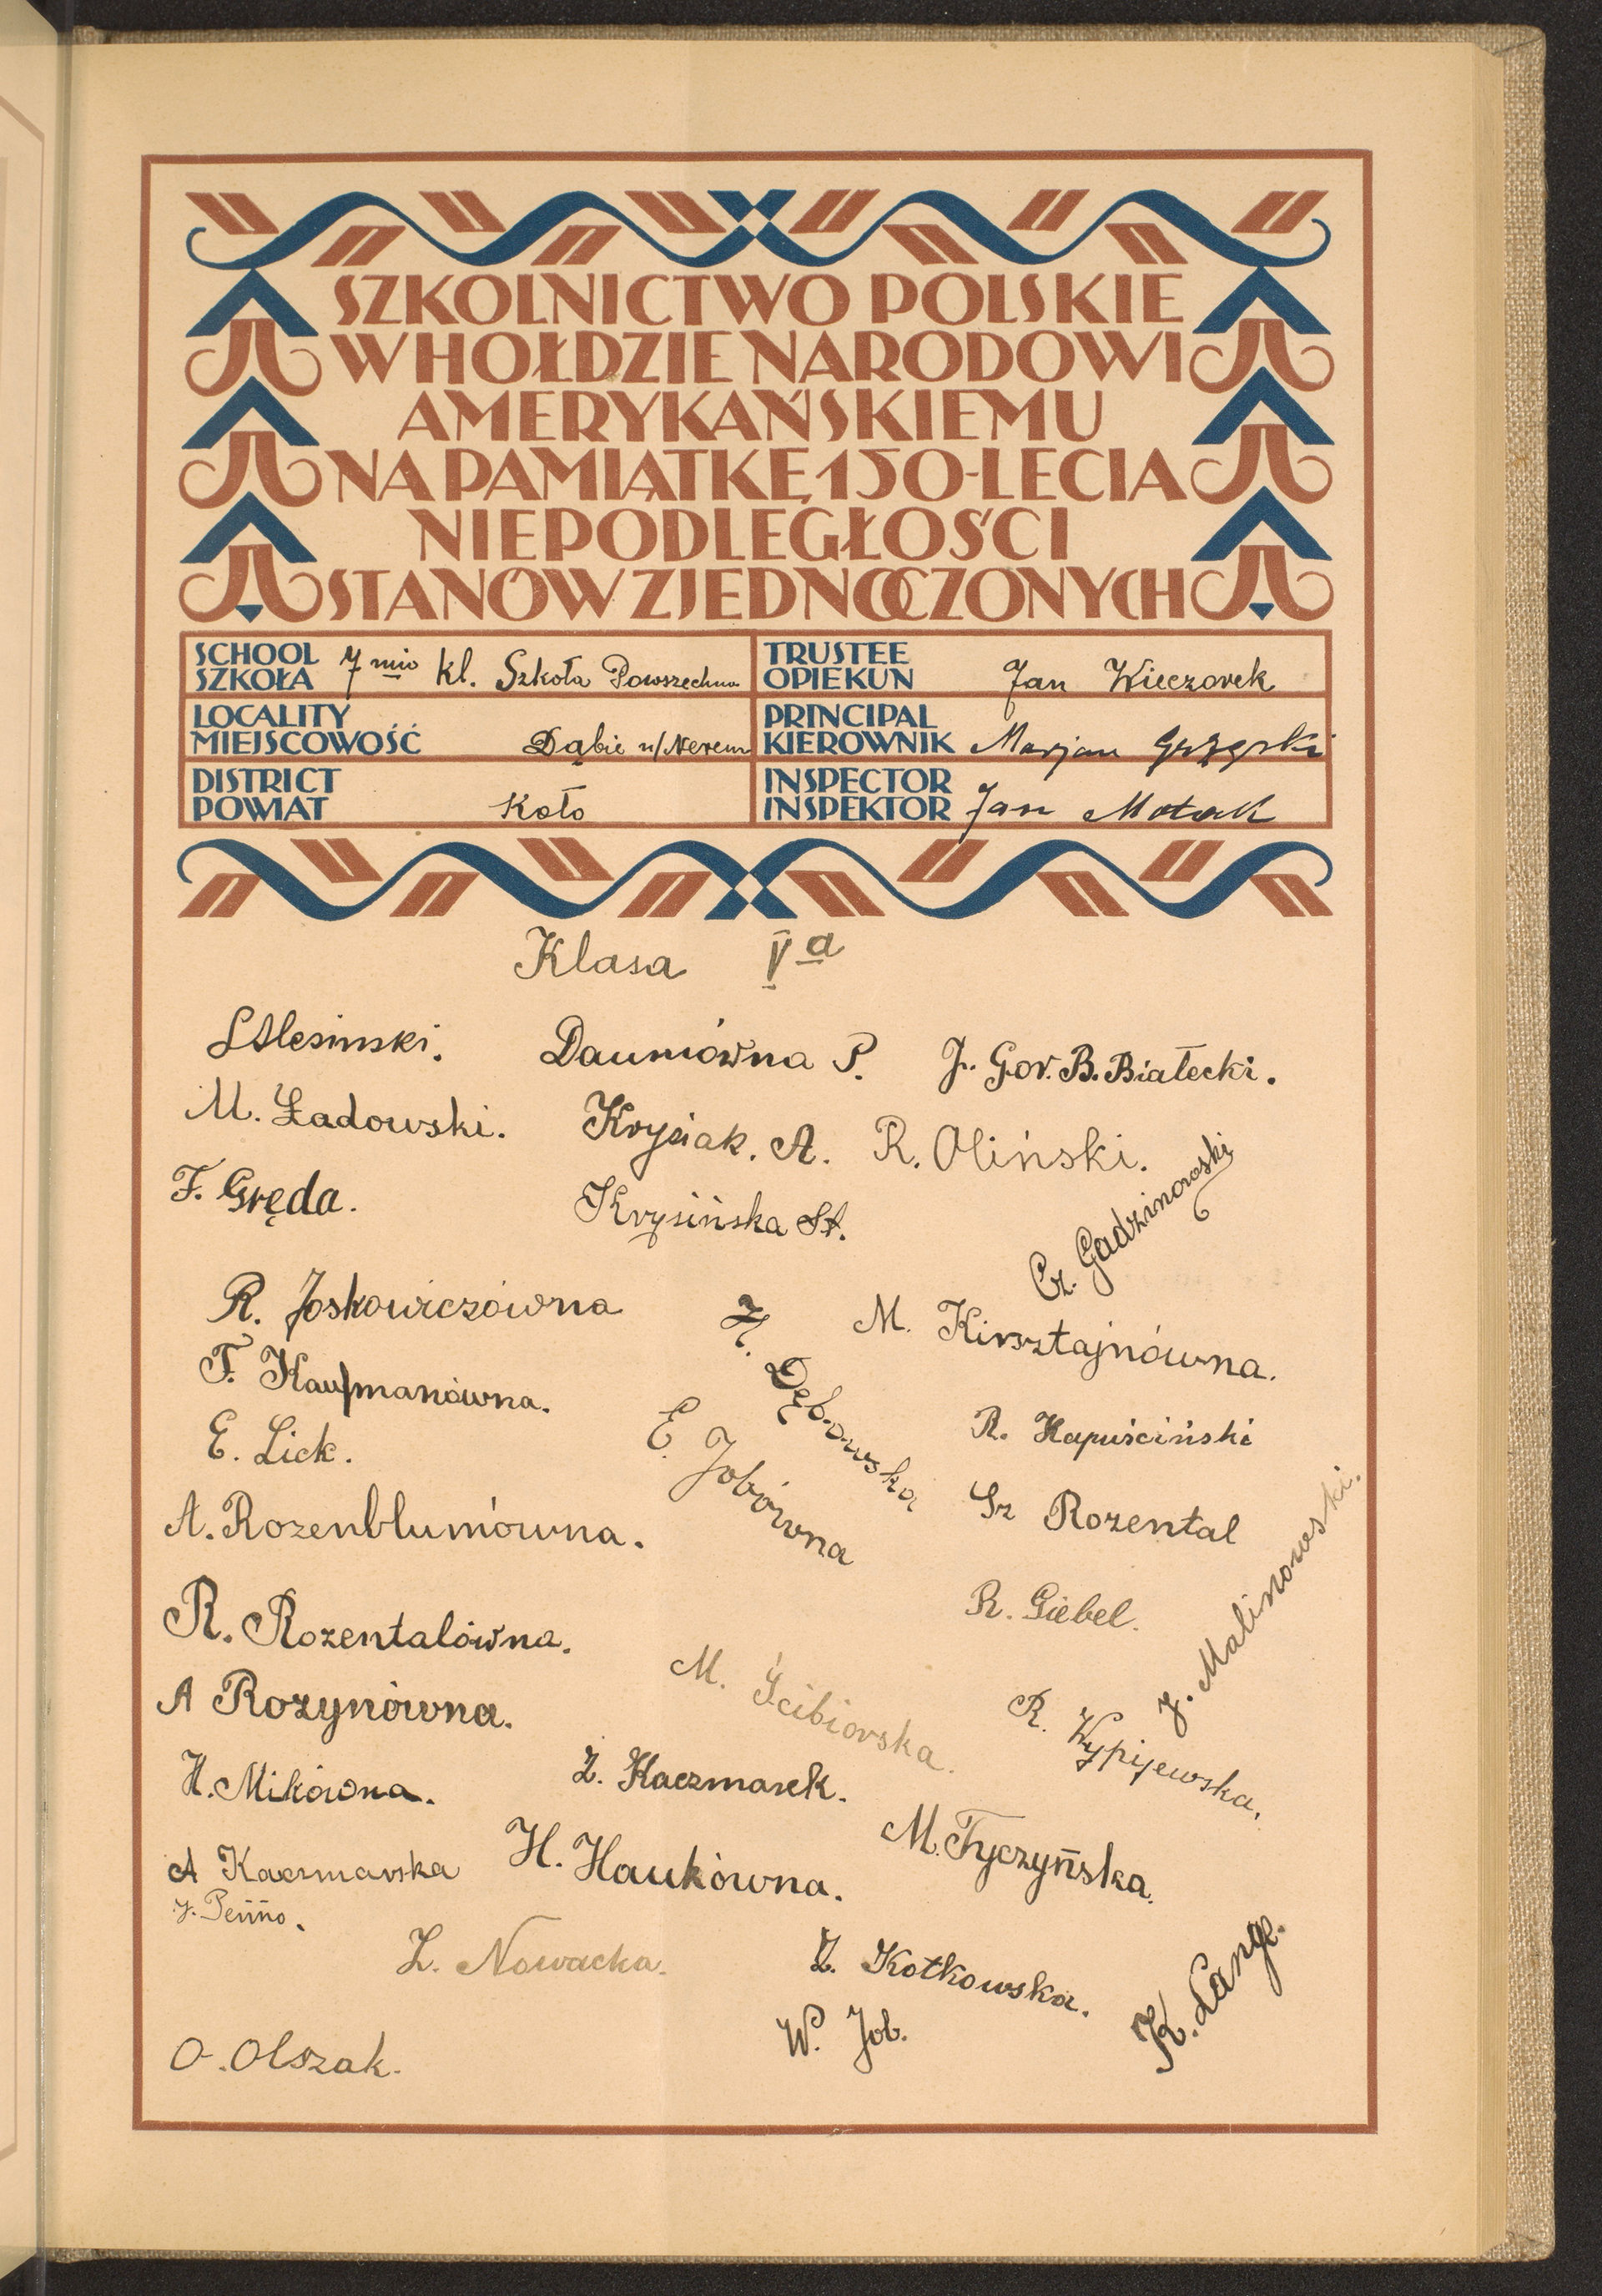 SZKOLNICTWO POLSKIE
W HOŁDZIE NARODOWI
AMERYKAŃSKIEMU
NA PAMIĄTKĘ 150-LECIA
NIEPODLEGŁOŚCI
STANÓW ZJEDNOCZONYCH
SCHOOL
SZKOŁA 7 mio kl. Szkoła Powszechna
TRUSTEE
OPIEKUN Jan Wieczorek
LOCALITY
MIEJSCOWOŚĆ Dąbie n/Nerem
PRINCIPAL
KIEROWNIK Marjan
DISTRICT
POWIAT Koło
INSPECTOR
INSPEKTOR Jan Motak
Klasa Va
S Alesinski.
Daumówna P.
J. Gor. B. Białecki.
M. Ładowski.
Krysiak. A.
R. Oliński.
F. Gręda.
Krysińska St.
Cz. Gadzinowski
R. Joskowiczówna
H. Dębowska
M. Kirsztajnówna.
F. Kaufmanówna.
E. Jobówna
R. Kapuściński
E. Lick.
Sz Rozental
A. Rozenblumówna.
R. Giebel.
J. Malinowski.
R. Rozentalówna.
M. Ścibiorska.
R. Wypijewska.
A Rozynówna.
H. Mikówna.
Z. Kaczmarek.
M. Tyczyńska.
A Kaczmarska
H. Haukówna.
J. Penno.
Z. Nowacka.
Z. Kotkowska.
K. Lange.
W. Job.
O. Olszak.